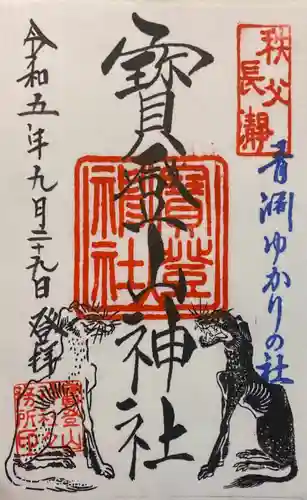 秩父
長瀞
青淵ゆかりの社
寳登山神社
寳登
山神
社
令和五年九月二十九日 登拝
寳登山
神社社
務所印